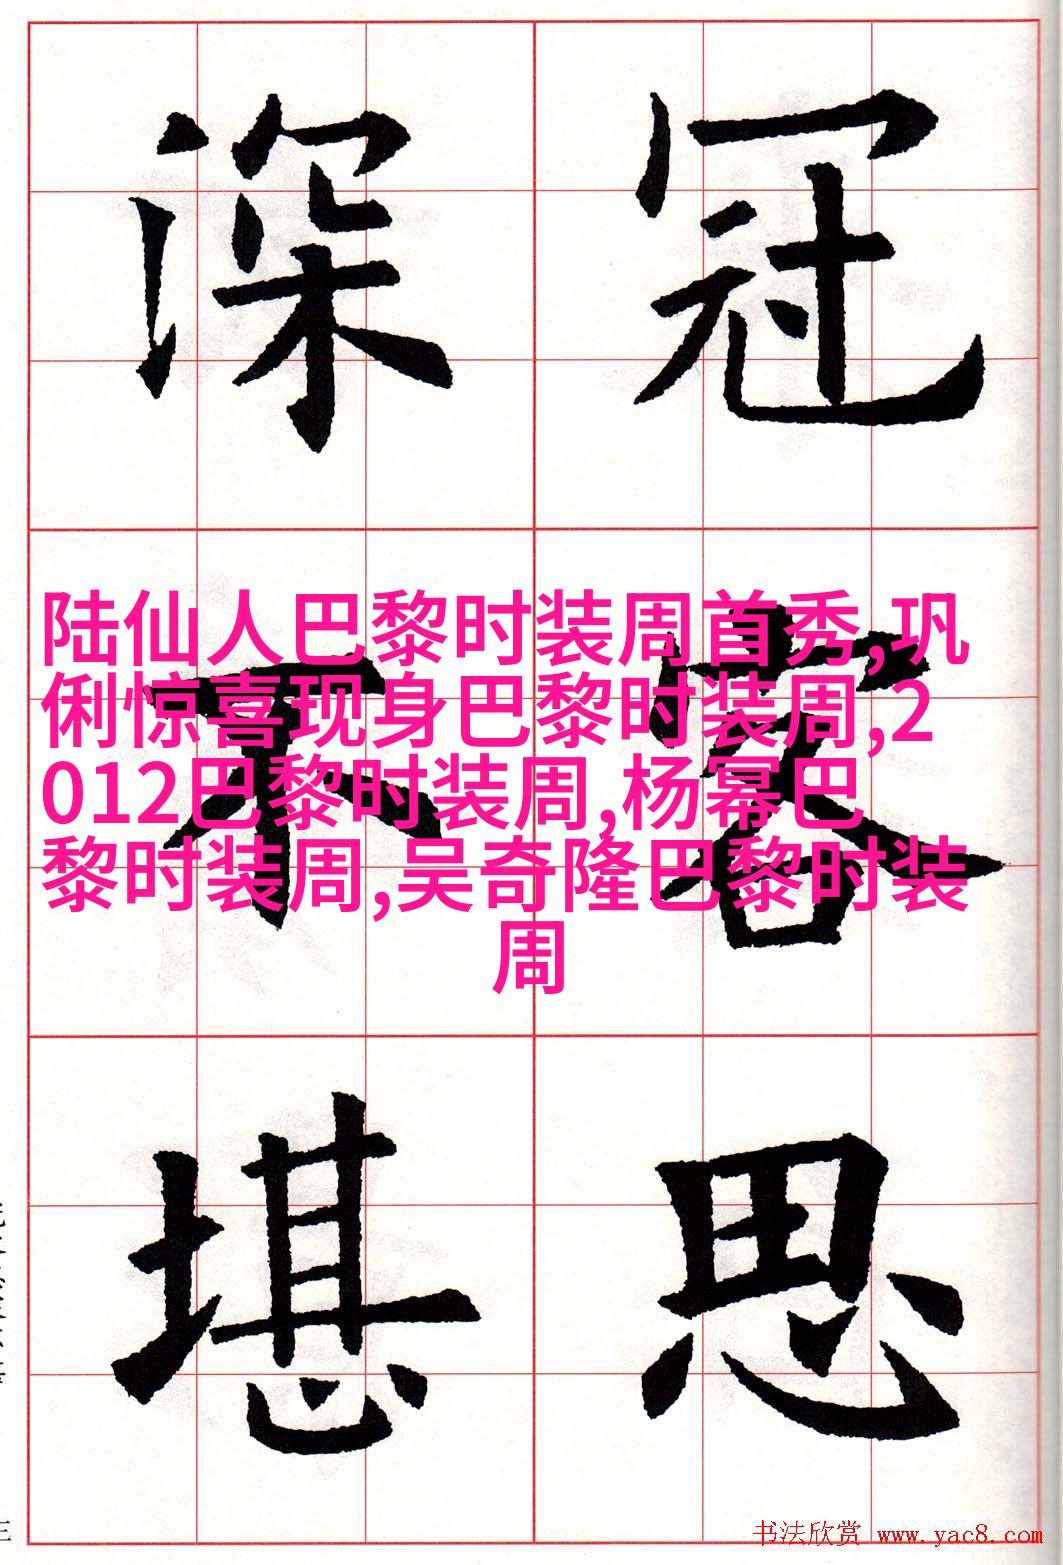 深冠
陆仙人巴黎时装周首秀,巩
俐惊喜现身巴黎时装周,2
012巴黎时装周,杨幂巴
黎时装周,吴奇隆巴黎时装
周
不容
堪思
书法欣赏 www.yac8.com